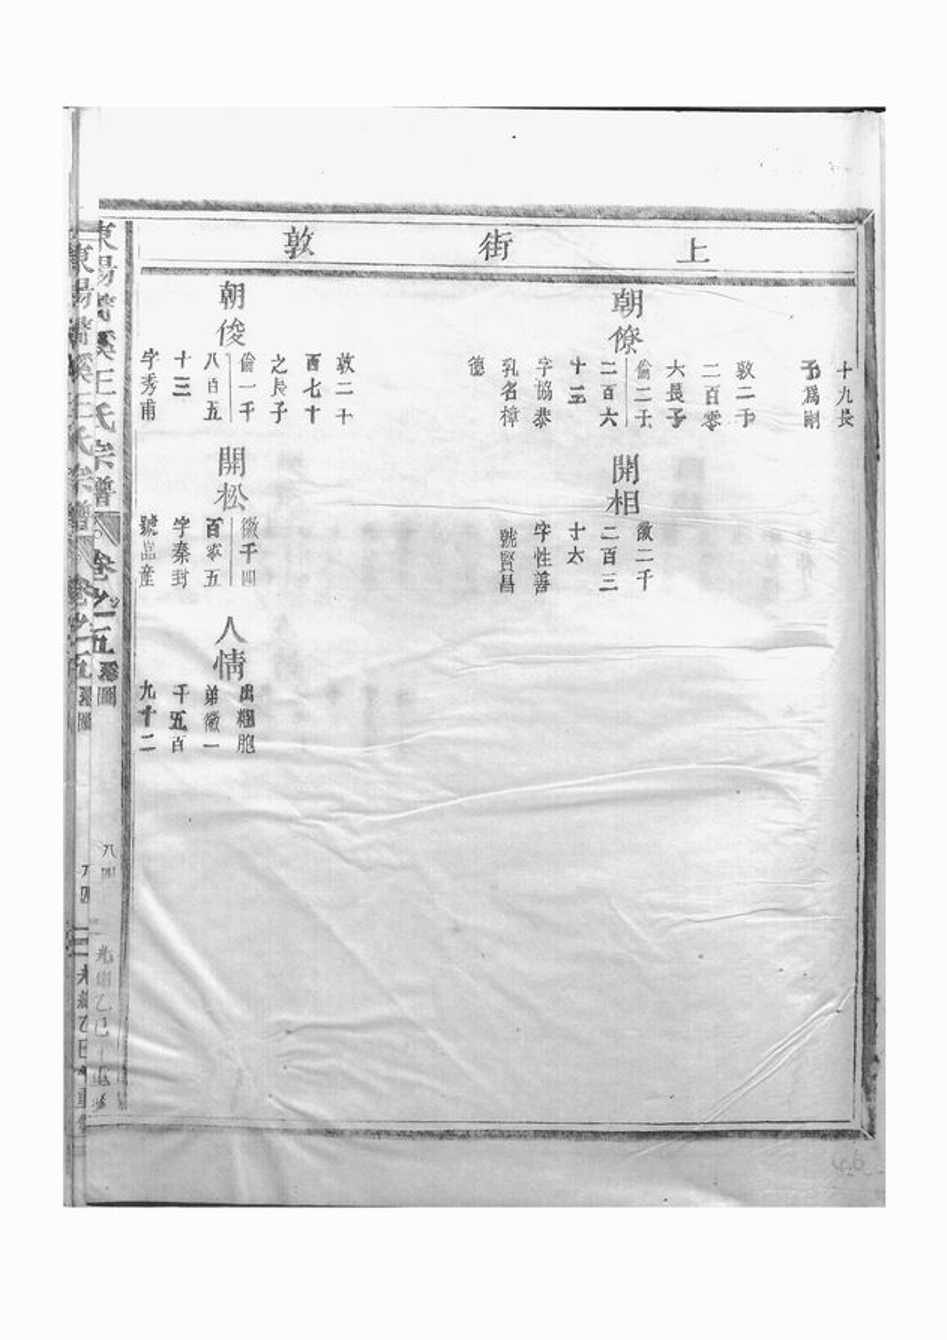 上街敦
十九長
子為嗣
敦二千
二百零
六長子
朝僚
倫二千
二百六
十二
字協恭
乳名樟
德
開相
徽二千
二百三
十六
字性善
號賢昌
敦二千
酉七十
之長子
朝俊
倫一千
八百五
十三
字秀甫
開松
徽千四
百零五
字秦封
號嵓産
人情
出繼胞
弟徽一
千五百
九十二
東陽
溪王氏宗譜
卷之五
圖
八四
光緒乙巳